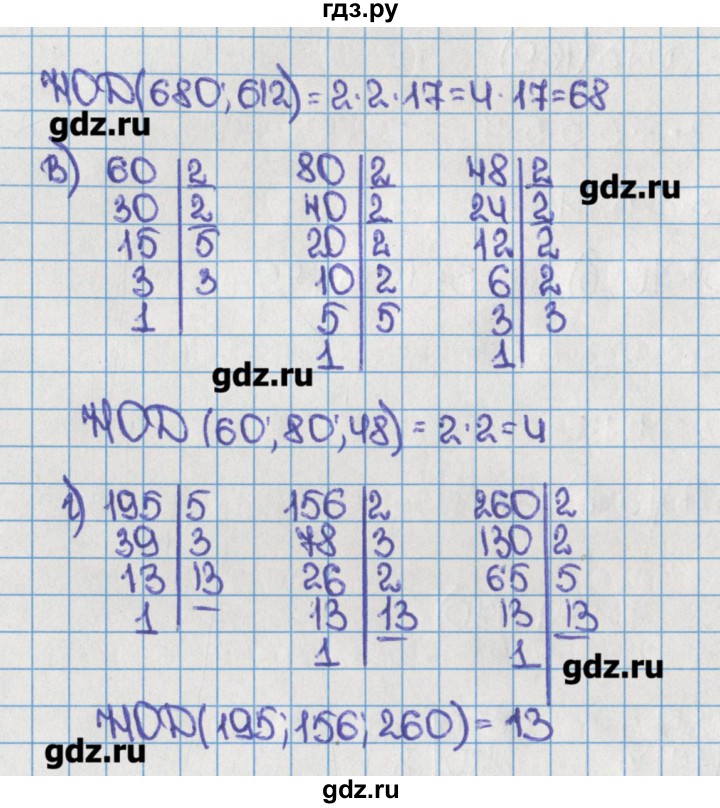 гдз.ру
НОД(680; 612) = 2·2·17=4·17=68
gdz.ru
в) 60 | 2 80 | 2 48 | 2
gdz.ru
30 | 2 40 | 2 24 | 2
15 | 5 20 | 2 12 | 2
3 | 3 10 | 2 6 | 2
1 | 5 | 5 3 | 3
1 | 1 |
gdz.ru
НОД (60; 80; 48) = 2·2=4
г) 195 | 5 156 | 2 260 | 2
39 | 3 78 | 3 130 | 2
13 | 13 26 | 2 65 | 5
1 | 13 | 13 13 | 13
1 | 1 |
gdz.ru
НОД(195; 156; 260) = 13
gdz.ru
gdz.ru